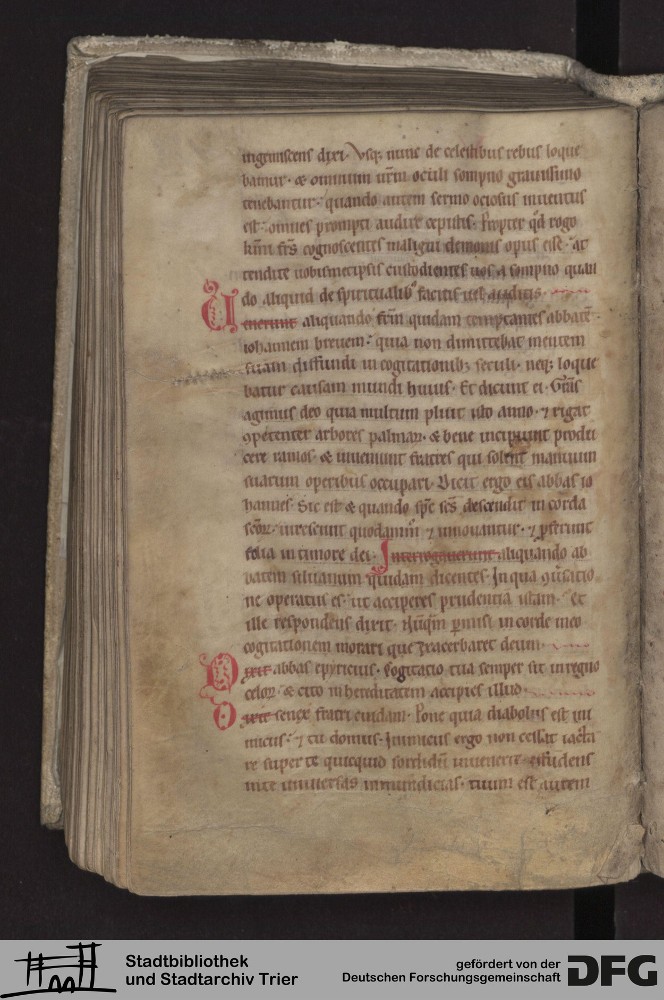 ingemiscens dixi. Vsq; nunc de celestibus rebus loque
bamur. & omnium ur̄m oculi sompno grauissimo
tenebantur. quando autem sermo ociosus inuentus
est. omnes prompti audire cepistis. Propter qđ rogo
kmī frs̄ cognoscentes maligni demonis opus esse. at
tendite uobismetipsis custodientes uos a sompno quan
do aliquid de spiritualib; facitis uel auditis.
Uenerunt aliquando frm̄ quidam temptantes abbatē
iohannem breuem. quia non dimittebat mentem
suam diffundi in cogitationib; seculi. neq; loque
batur causam mundi huius. Et dicunt ei. Grās
agimus deo quia multum pluit isto anno. ⁊ rigat
9petenter arbores palmaꝝ. & bene incipiunt produ
cere ramos. & inueniunt fratres qui solent manuum
suarum operibus occupari. Dicit ergo eis abbas io
hannes. Sic est & quando spc̄ scs̄ descendit in corda
scoꝝ. uirescunt quodammō ⁊ innouantur. ⁊ pferunt
folia in timore dei. Interrogauerunt aliquando ab
batem siluanum quidam dicentes. In qua 9uersatio
ne operatus es. ut acciperes prudentiā istam. Et
ille respondens dixit. Nūqm̄ pmisi in corde meo
cogitationem morari que exacerbaret deum.
Dixit abbas epyricius. Cogitatio tua semper sit in regno
celoꝝ. & cito in hereditatem accipies illud.
Dixit senex fratri cuidam. Pone quia diabolus est ini
micus. ⁊ tu domus. Inimicus ergo non cessat iacta
re super te quicquid sordidū inuenerit. effundens
in te uniuersas inmundicias. tuum est autem
Stadtbibliothek
und Stadtarchiv Trier
gefördert von der
Deutschen Forschungsgemeinschaft
DFG